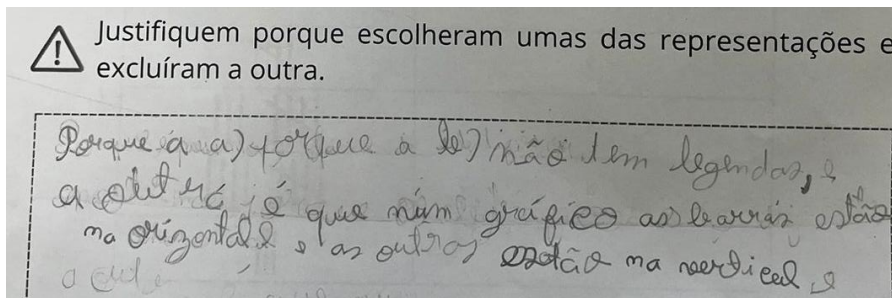 Justifiquem porque escolheram umas das representações e
excluíram a outra.
Porque a a) porque a b) não tem legendas, e
a outra é que num gráfico as barras estão
na orizontal e as outras estão na vertical e
a